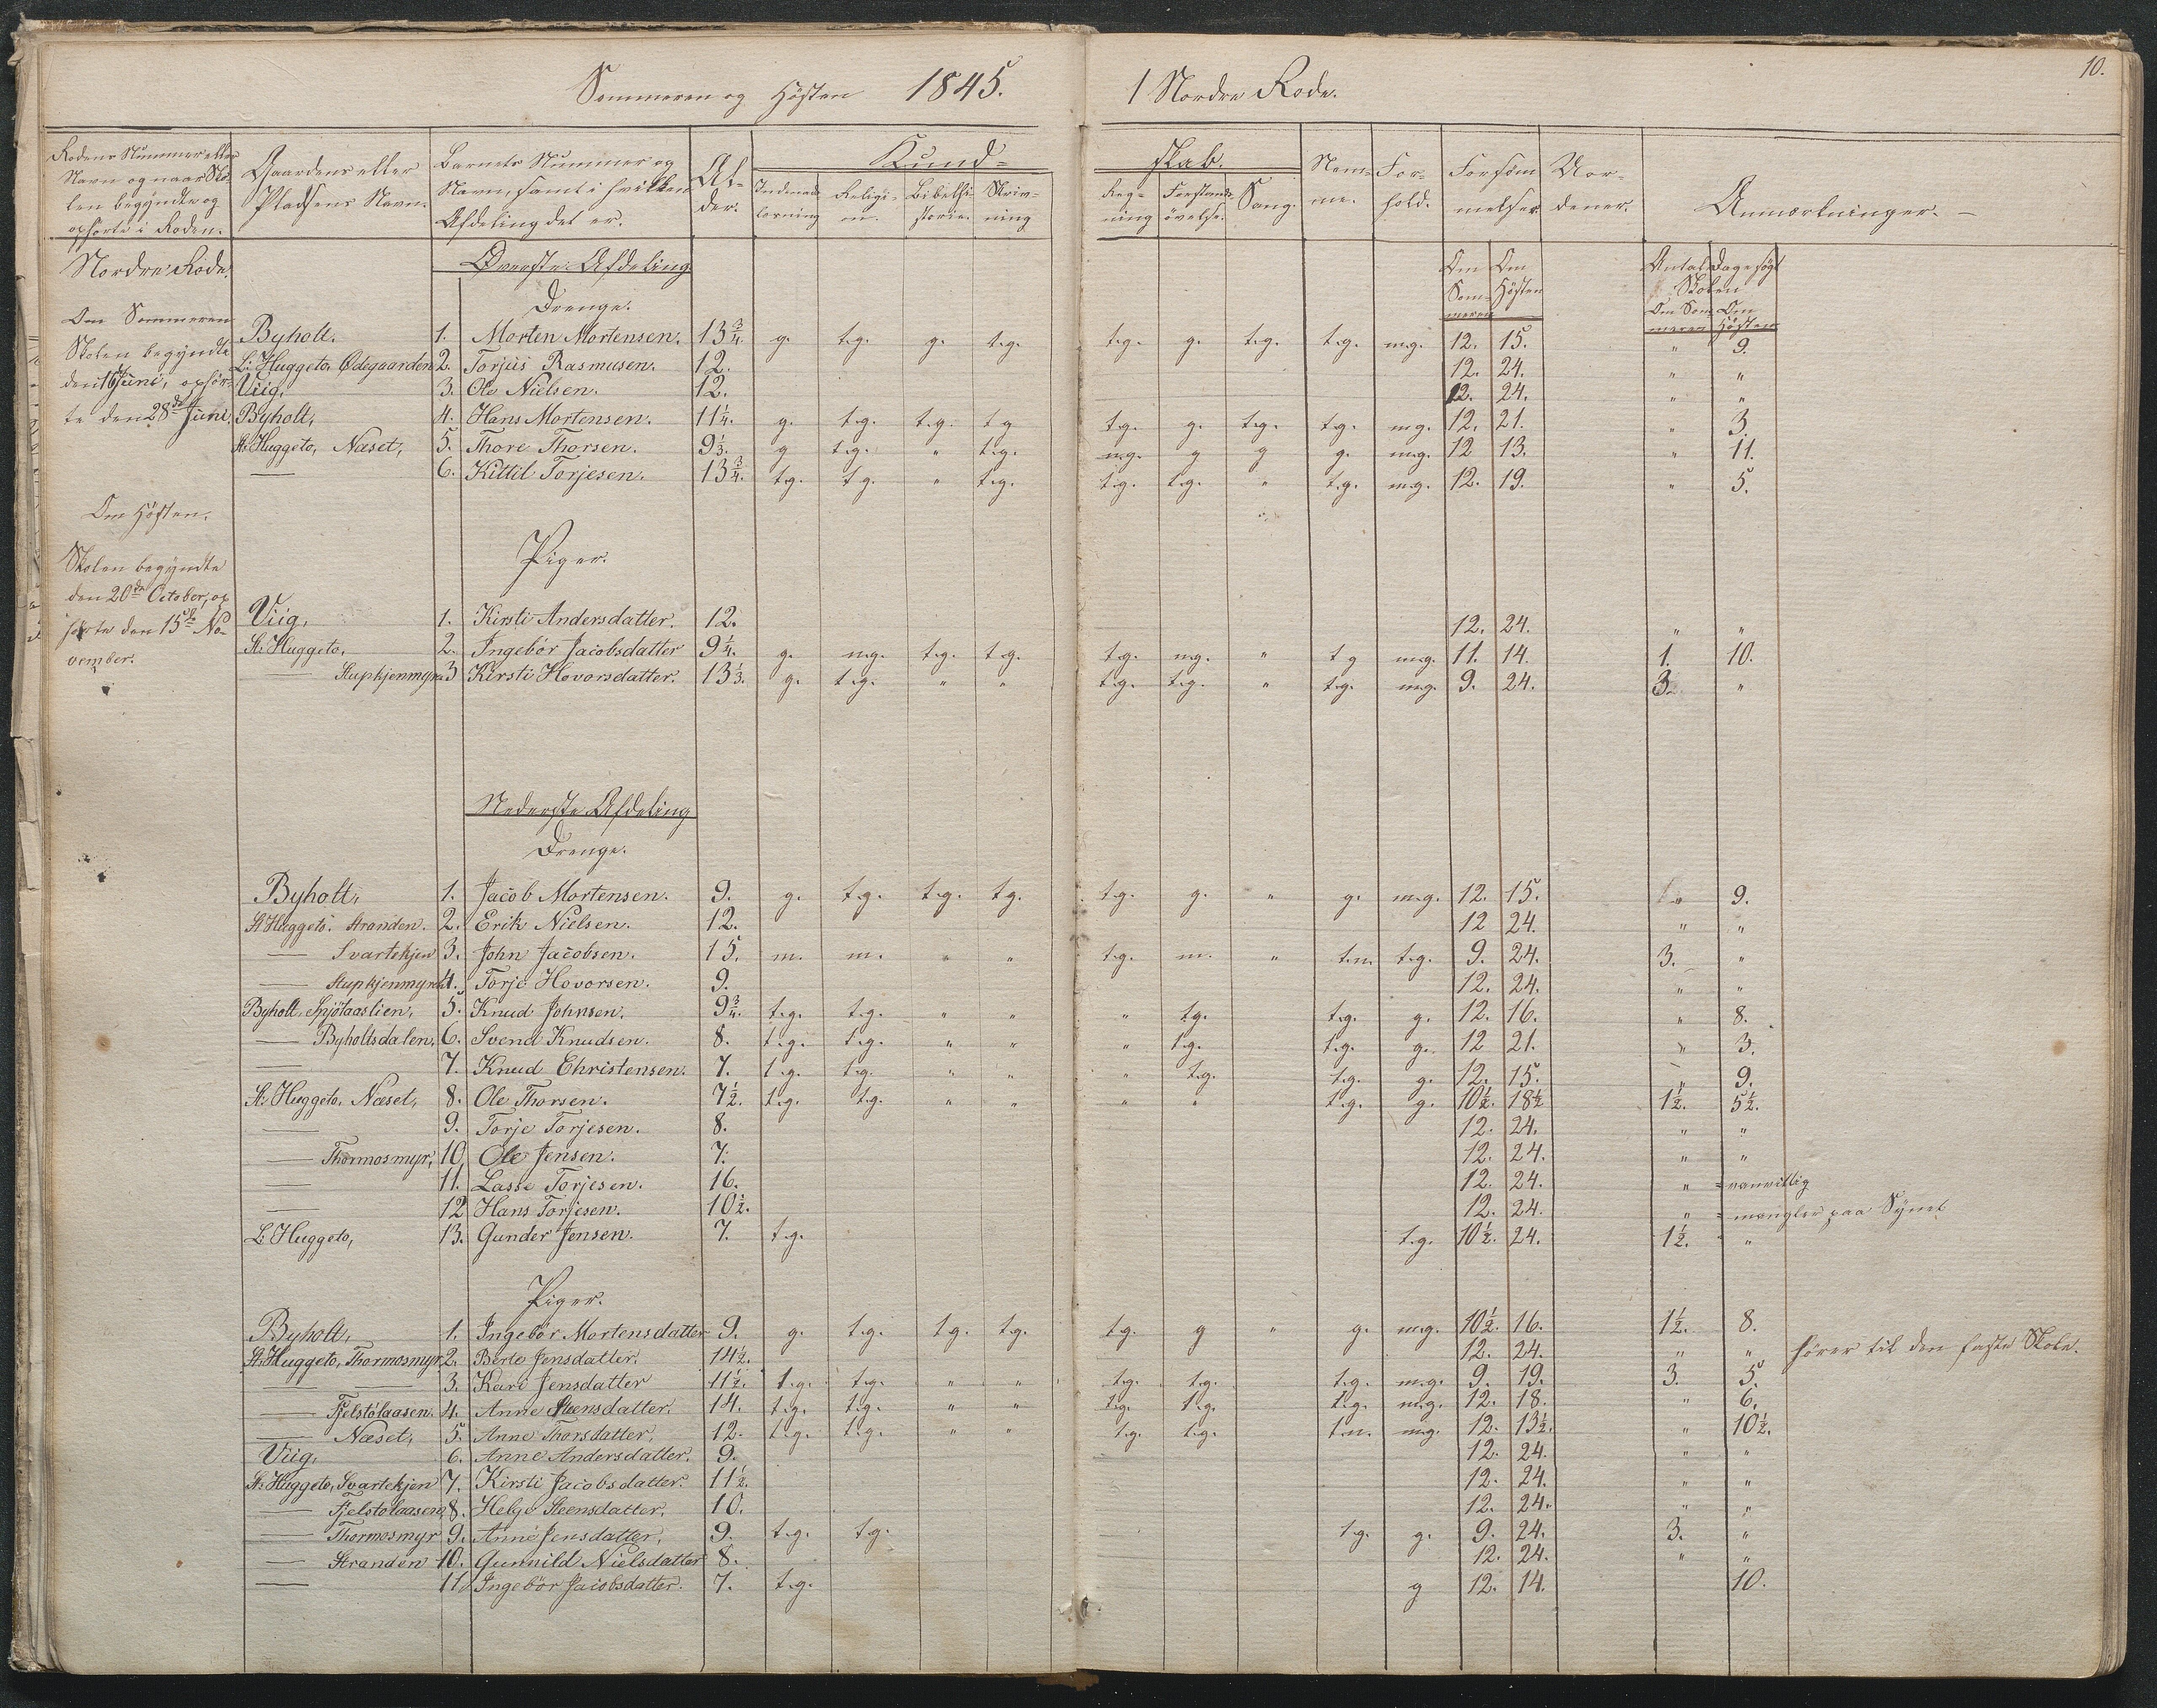 Sommeren og Høsten 1845. 1 Nordre Rode. 10.
Rodens Nummer eller Navn og naar Skolen begyndte og ophørte i Roden. Gaardens eller Pladsens Navn. Barnets Nummer og Navn, samt i hvilken Afdeling det er. Alder. Kundskab. Indenadlæsning Religion. Bibelhistorie. Skrivning Regning Forstandsøvelse. Sang. Nemme. Forhold. Forsømmelser. Anmærkninger.
Nordre Rode. Øverste Afdeling Om Sommeren Om Høsten Antal Dage søgt Skolen Om Sommeren Om Høsten
Drenge.
Om Sommeren
Skolen begyndte
den 16 Juni, ophørte
den 28de Juni.
Byholt, 1. Morten Mortensen. 13 3/4. g. t.g. g. t.g. t.g. g. t.g. t.g. m.g. 12. 15. " 9.
L: Huggeto, Ødegaarden 2. Torjus Rasmusen. 12. 12. 24. " "
Viig, 3. Ole Nielsen. 12. 12. 24. " "
Byholt, 4. Hans Mortensen. 11 1/4. g. t.g. t.g. t g t.g. g. t.g. t.g. m.g. 12. 21. " 3.
St: Huggeto, Næset, 5. Thore Thorsen. 9 1/3. g t.g. " t.g. m.g. g g g. m.g. 12 13. " 11.
— 6. Kittil Torjesen. 13 3/4. t.g. t.g. " t.g. t.g. t.g. " t.g. m.g. 12. 19. " 5.
Om Høsten.
Skolen begyndte
den 20de October, op
hørte den 15de No
vember.
Piger.
Viig, 1. Kirsti Andersdatter. 12. 12. 24. " "
St: Huggeto, 2. Ingebor Jacobsdatter 9 1/4. g. m.g. t.g. t.g. t.g. m.g. " t g m.g. 11. 14. 1. 10.
— Stupkjenmyra 3 Kirsti Hovorsdatter. 13 1/3. g. t.g. " " t.g. t.g. " t.g. m.g. 9. 24. 3. "
Nederste Afdeling
Drenge.
Byholt, 1. Jacob Mortensen. 9. g. t.g. t.g. t.g. t.g. g. " g. m.g. 12. 15. " 9.
St Huggeto. Stranden. 2. Erik Nielsen. 12. 12 24. " "
— Svartekjen 3. John Jacobsen. 15. m. m. " " t.g. m. " t.m. t.g. 9. 24. 3. "
— Stupkjenmyra 4. Torje Hovorsen. 9. 12. 24. " "
Byholt, Spjötaaslien, 5. Knud Johnsen. 9 3/4. t.g. t.g. " " " t.g. t.g. g. 12. 16. " 8.
— Byholtsdalen, 6. Svend Knudsen. 8. t.g. t.g. " " " t.g. t.g. g. 12 21. " 3.
— 7. Knud Christensen. 7. t.g. t.g. " " " t.g. t.g. g. 12. 15. " 9.
St: Huggeto, Næset, 8. Ole Thorsen. 7 1/2. t.g. t.g. " " " " t.g. g. 10 1/2. 18 1/2 1 1/2. 5 1/2.
— 9. Torje Torjesen. 8. 12. 24. " "
— Thormosmyr, 10. Ole Jensen. 7. 12. 24. " "
— 11. Lasse Torjesen. 16. 12. 24. " vanvittig
— 12 Hans Torjesen. 10 1/2. 12. 24. " mangler paa Synet
L: Huggeto, 13. Gunder Jensen. 7. t.g. t.g. 10 1/2. 24. 1 1/2. "
Piger.
Byholt, 1. Ingebor Mortensdatter 9. g. t.g. t.g. t.g. t.g. g " g. m.g. 10 1/2. 16. 1 1/2. 8.
St: Huggeto, Thormosmyr 2. Berte Jensdatter. 14 1/2. 12. 24. " " hører til den faste Skole.
— — 3. Kari Jensdatter 11 1/2. t.g. t.g. " " t.g. t.g. t.g. m.g. 9. 19. 3. 5.
— Fjelstølaasen. 4. Anne Steensdatter. 14. t.g. t.g. " " t.g. t.g. t.g. m.g. 12. 18. " 6.
— Næset, 5. Anne Thorsdatter, 12. t.g. t.g. " " t.g. t.g. t.m. m.g. 12. 13 1/2. " 10 1/2.
Viig, 6. Anne Andersdatter. 9. 12. 24. " "
St: Huggeto, Svartekjen 7. Kirsti Jacobsdatter. 11 1/2. 12. 24. " "
— Fjelstølaasen 8. Helge Steensdatter. 10. 12. 24. " "
— Thormosmyr 9. Anne Jensdatter, 9. t.g. t.g. t.g. g. 9. 24. 3. "
— Stranden 10. Gunnild Nielsdatter 8. 12. 24. " "
— 11. Ingebör Jacobsdatter. 7. t.g. g 12. 14. 10.